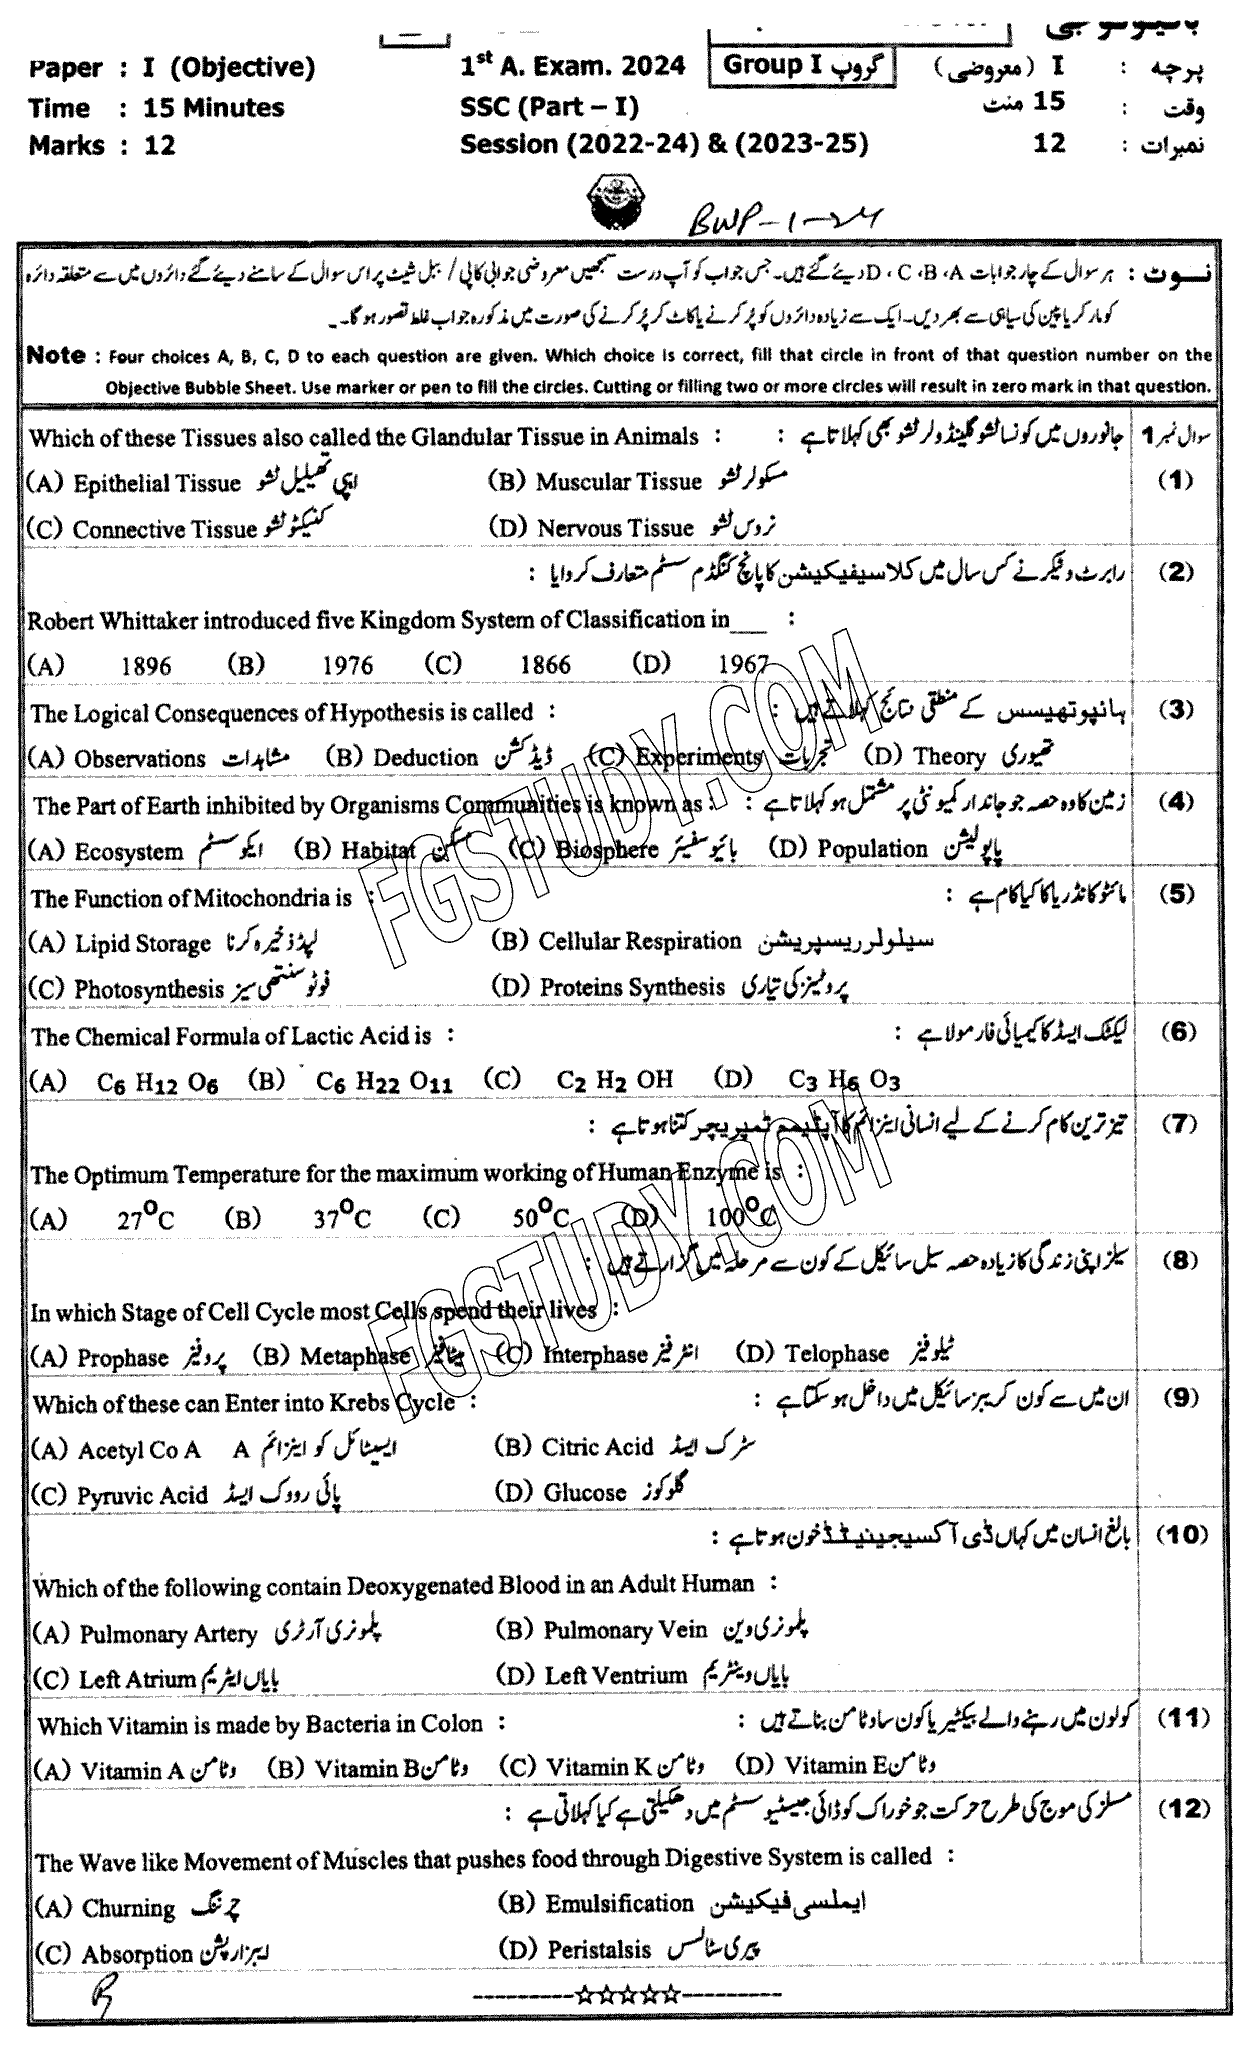 بائیولوجی
Paper : I (Objective) 1st A. Exam. 2024 Group I گروپ پرچہ : I (معروضی)
Time : 15 Minutes SSC (Part – I) وقت : 15 منٹ
Marks : 12 Session (2022-24) & (2023-25) نمبرات : 12
BWP-1-24
نوٹ : ہر سوال کے چار جوابات A، B، C، D دیئے گئے ہیں۔ جس جواب کو آپ درست سمجھیں معروضی جوابی کاپی / ببل شیٹ پر اس سوال کے سامنے دیئے گئے دائروں میں سے متعلقہ دائرہ
کو مارکر یا پین کی سیاہی سے بھر دیں۔ ایک سے زیادہ دائروں کو پُر کرنے یا کاٹ کر پُر کرنے کی صورت میں مذکورہ جواب غلط تصور ہو گا۔
Note : Four choices A, B, C, D to each question are given. Which choice is correct, fill that circle in front of that question number on the
Objective Bubble Sheet. Use marker or pen to fill the circles. Cutting or filling two or more circles will result in zero mark in that question.
Which of these Tissues also called the Glandular Tissue in Animals : جانوروں میں کونسا ٹشو گلینڈولر ٹشو بھی کہلاتا ہے : سوال نمبر 1
(A) Epithelial Tissue اپی تھیلیل ٹشو (B) Muscular Tissue مسکولر ٹشو (1)
(C) Connective Tissue کنیکٹو ٹشو (D) Nervous Tissue نروس ٹشو
رابرٹ وٹیکر نے کس سال میں کلاسیفیکیشن کا پانچ کنگڈم سسٹم متعارف کروایا : (2)
Robert Whittaker introduced five Kingdom System of Classification in___ :
(A) 1896 (B) 1976 (C) 1866 (D) 1967
The Logical Consequences of Hypothesis is called : ہائپوتھیسس کے منطقی نتائج کہلاتے ہیں : (3)
(A) Observations مشاہدات (B) Deduction ڈیڈکشن (C) Experiments تجربات (D) Theory تھیوری
The Part of Earth inhibited by Organisms Communities is known as : زمین کا وہ حصہ جو جاندار کمیونٹی پر مشتمل ہو کہلاتا ہے : (4)
(A) Ecosystem ایکو سسٹم (B) Habitat مسکن (C) Biosphere بائیوسفیئر (D) Population پاپولیشن
The Function of Mitochondria is : مائٹوکانڈریا کا کیا کام ہے : (5)
(A) Lipid Storage لپڈ ذخیرہ کرنا (B) Cellular Respiration سیلولر ریسپریشن
(C) Photosynthesis فوٹو سنتھی سیز (D) Proteins Synthesis پروٹینز کی تیاری
The Chemical Formula of Lactic Acid is : لیکٹک ایسڈ کا کیمیائی فارمولا ہے : (6)
(A) C6 H12 O6 (B) C6 H22 O11 (C) C2 H2 OH (D) C3 H6 O3
تیز ترین کام کرنے کے لیے انسانی اینزائم کا آپٹیمم ٹمپریچر کتنا ہوتا ہے : (7)
The Optimum Temperature for the maximum working of Human Enzyme is :
(A) 27°C (B) 37°C (C) 50°C (D) 100°C
سیلز اپنی زندگی کا زیادہ حصہ سیل سائیکل کے کون سے مرحلہ میں گزارتے ہیں : (8)
In which Stage of Cell Cycle most Cells spend their lives :
(A) Prophase پروفیز (B) Metaphase میٹافیز (C) Interphase انٹرفیز (D) Telophase ٹیلوفیز
Which of these can Enter into Krebs Cycle : ان میں سے کون کریبز سائیکل میں داخل ہو سکتا ہے : (9)
(A) Acetyl Co A ایسیٹائل کو اینزائم A (B) Citric Acid سٹرک ایسڈ
(C) Pyruvic Acid پائی رووک ایسڈ (D) Glucose گلوکوز
بالغ انسان میں کہاں ڈی آکسیجینیٹڈ خون ہوتا ہے : (10)
Which of the following contain Deoxygenated Blood in an Adult Human :
(A) Pulmonary Artery پلمونری آرٹری (B) Pulmonary Vein پلمونری وین
(C) Left Atrium بایاں ایٹریم (D) Left Ventrium بایاں وینٹریم
Which Vitamin is made by Bacteria in Colon : کولون میں رہنے والے بیکٹیریا کون سا وٹامن بناتے ہیں : (11)
(A) Vitamin A وٹامن (B) Vitamin B وٹامن (C) Vitamin K وٹامن (D) Vitamin E وٹامن
مسلز کی موج کی طرح حرکت جو خوراک کو ڈائی جیسٹیو سسٹم میں دھکیلتی ہے کیا کہلاتی ہے : (12)
The Wave like Movement of Muscles that pushes food through Digestive System is called :
(A) Churning چرننگ (B) Emulsification ایملسی فیکیشن
(C) Absorption ایبزارپشن (D) Peristalsis پیری سٹالسس
FGSTUDY.COM
FGSTUDY.COM